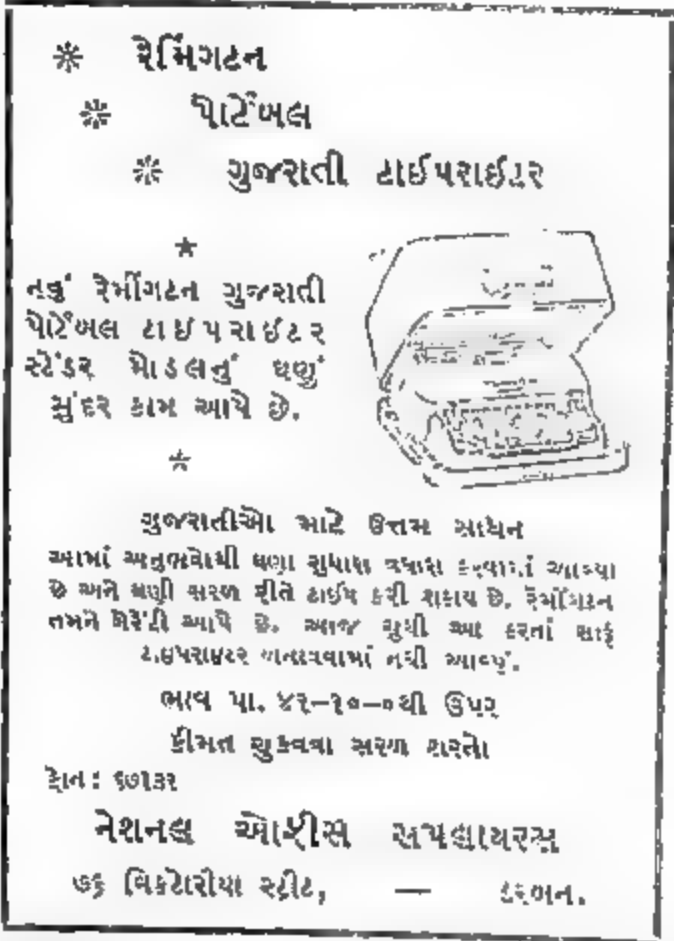 રેમિંગટન
પોર્ટેબલ
ગુજરાતી ટાઈપરાઈટર
નવું રેમીંગટન ગુજરાતી
પોર્ટેબલ ટાઈપરાઈટર
સ્ટેંડર મોડલનું ઘણું
સુંદર કામ આપે છે.
ગુજરાતીઓ માટે ઉત્તમ સાધન
આમાં અનુભવોથી ઘણા સુધારા વધારા કરવામાં આવ્યા
છે અને ઘણી સરળ રીતે ટાઈપ કરી શકાય છે. રેમીંગટન
તમને ગેરેંટી આપે છે. આજ સુધી આ કરતાં સારૂં
ટાઇપરાઇટર બનાવવામાં નથી આવ્યું.
ભાવ પા. ૪૨–૧૦–૦થી ઉપર
કીંમત ચુકવવા સરળ શરતો
ફોન : ૬૭૧૩૨
નેશનલ ઓફીસ સપલાયરસ
૭૬ વિકટોરીયા સ્ટ્રીટ, — ડરબન.